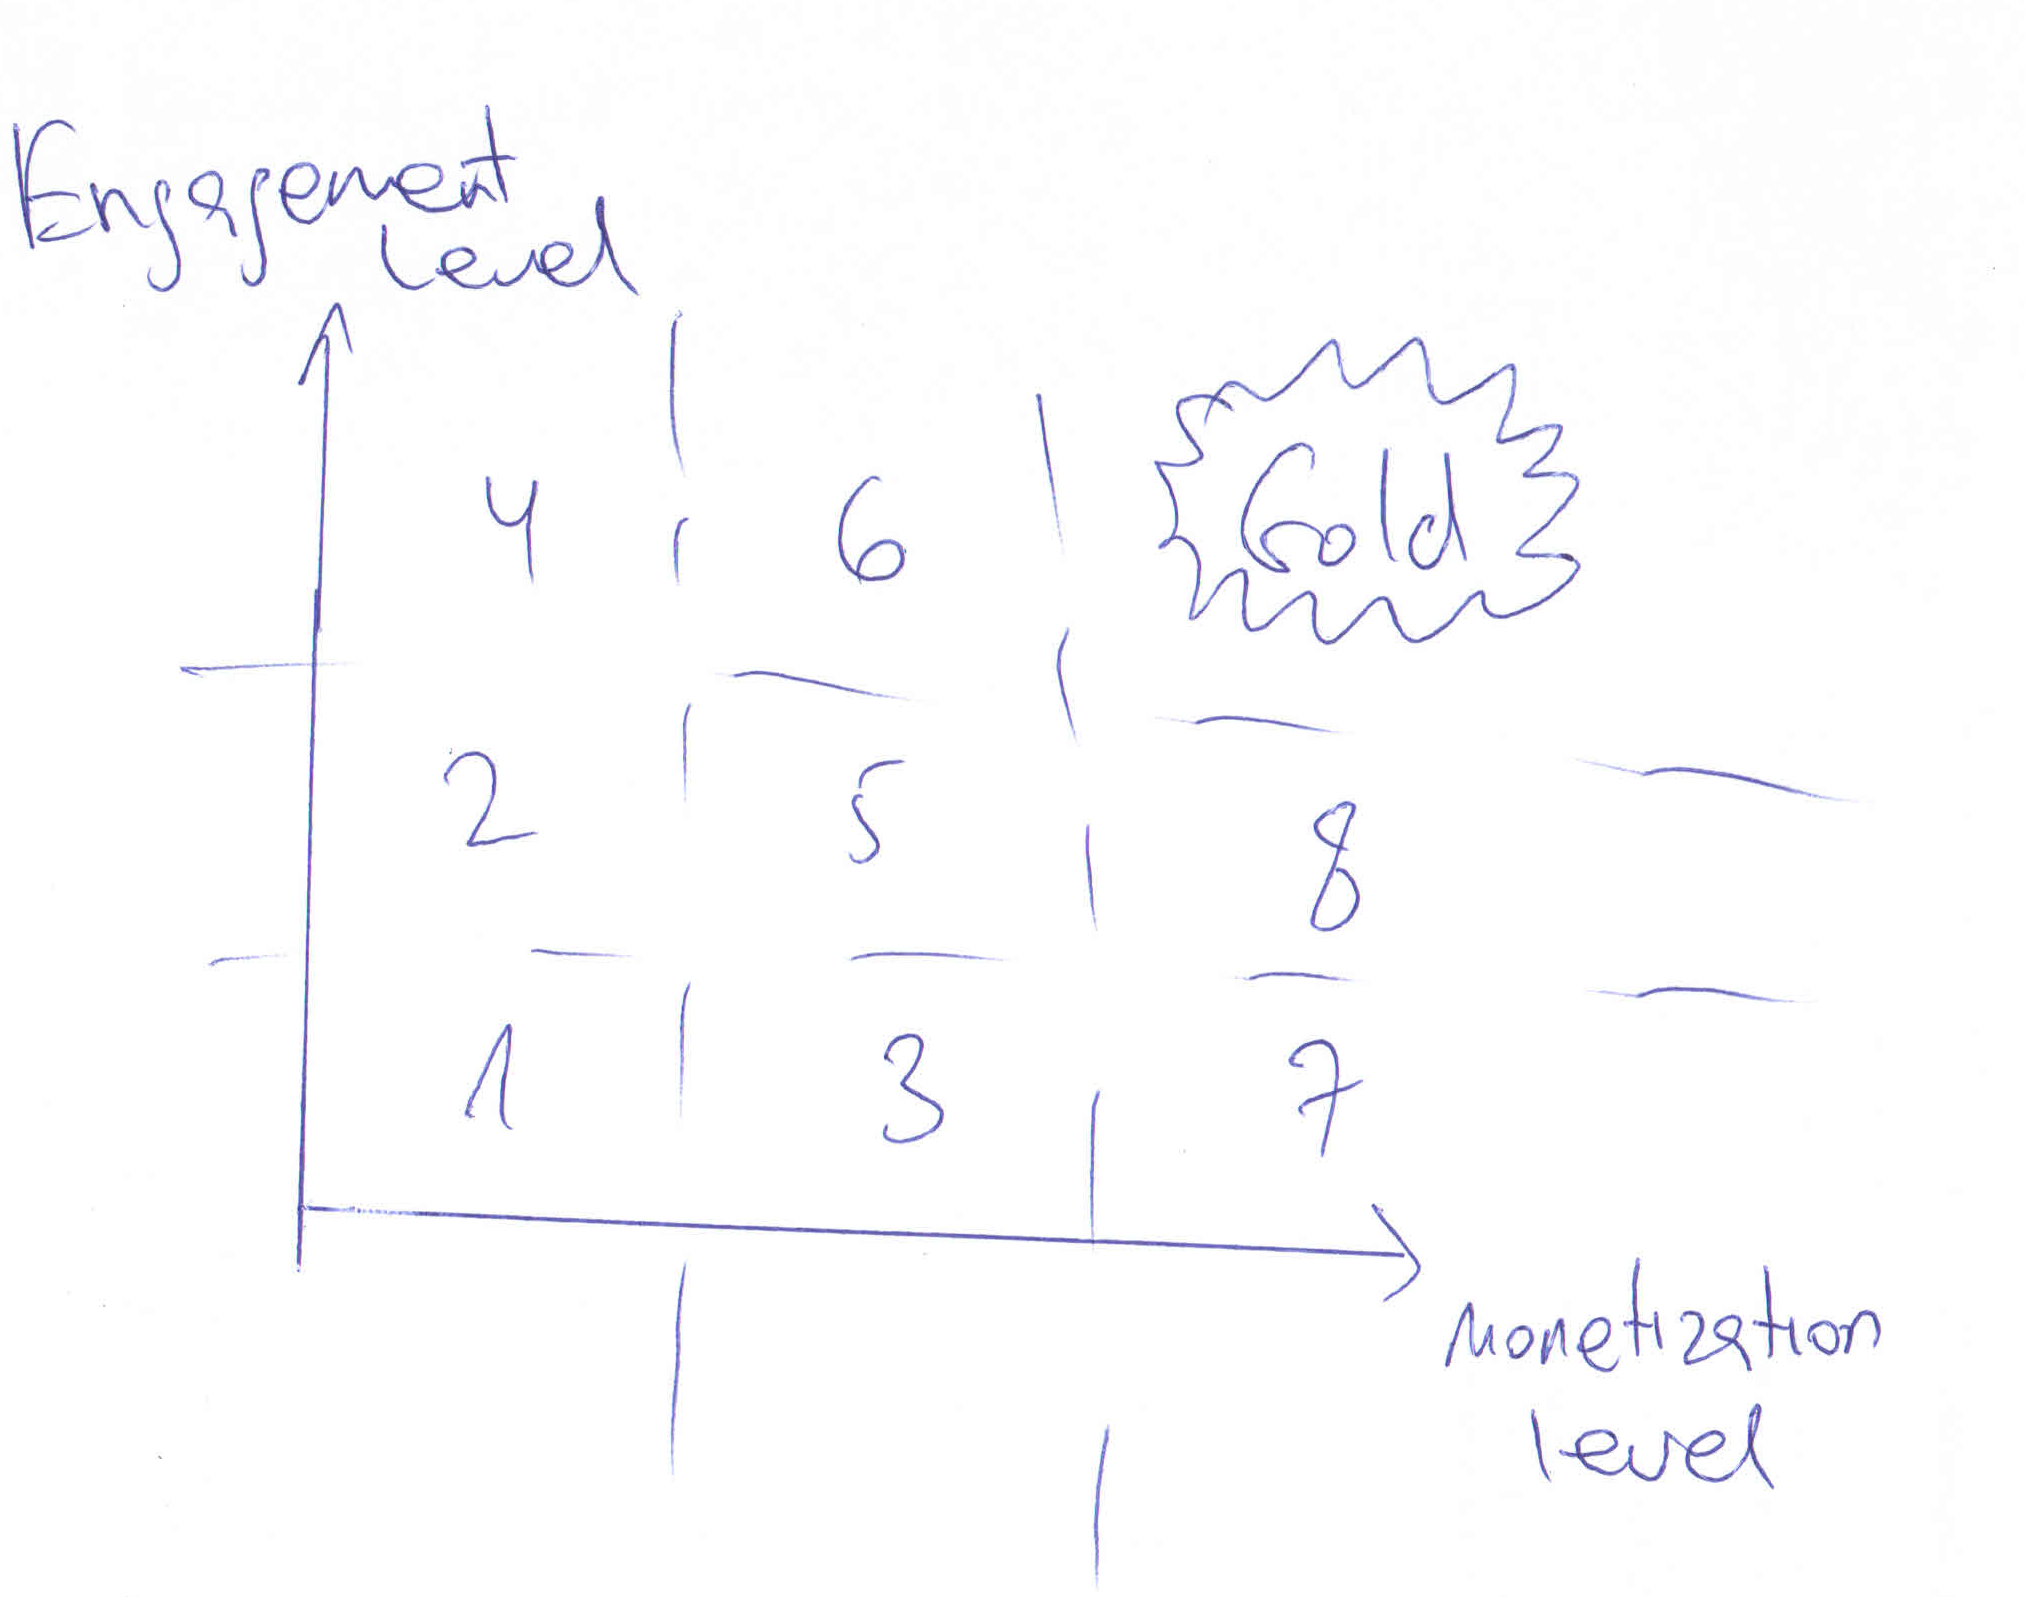 Engagement
Level
4 6 Gold
2 5 8
1 3 7
Monetization
level